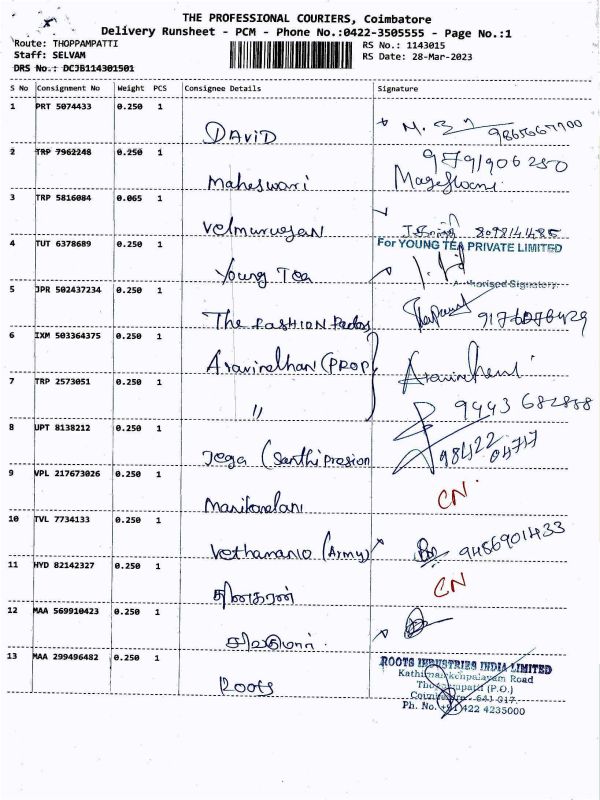 THE PROFESSIONAL COURIERS, Coimbatore
Delivery Runsheet - PCM - Phone No.:0422-3505555 - Page No.:1
Route: THOPPAMPATTI
Staff: SELVAM
DRS No.: DCJB114301501
RS No.: 1143015
RS Date: 28-Mar-2023
S No Consignment No Weight PCS Consignee Details Signature
1 PRT 5074433 0.250 1
DAVID
2 TRP 7962248 0.250 1 9791906250
Maheswari
3 TRP 5816084 0.065 1
Velmurugan
For YOUNG TEA PRIVATE LIMITED
4 TUT 6378689 0.250 1
Young Tea
Authorised Signatory
5 JPR 502437234 0.250 1
The FASHION
6 IXM 503364375 0.250 1
Aravindhan (PROP
7 TRP 2573051 0.250 1
〃 9443 682888
8 UPT 8138212 0.250 1
Jega (Santhi 98422 04717
9 VPL 217673026 0.250 1 CN.
Manikandan
10 TVL 7734133 0.250 1
(Army) 9486901433
11 HYD 82142327 0.250 1 CN
தினகரன்
12 MAA 569910423 0.250 1
சிவகுமார்.
13 MAA 299496482 0.250 1 ROOTS INDUSTRIES INDIA LIMITED
Roots
Coimbatore - 641 017.
Ph. No. +91 422 4235000